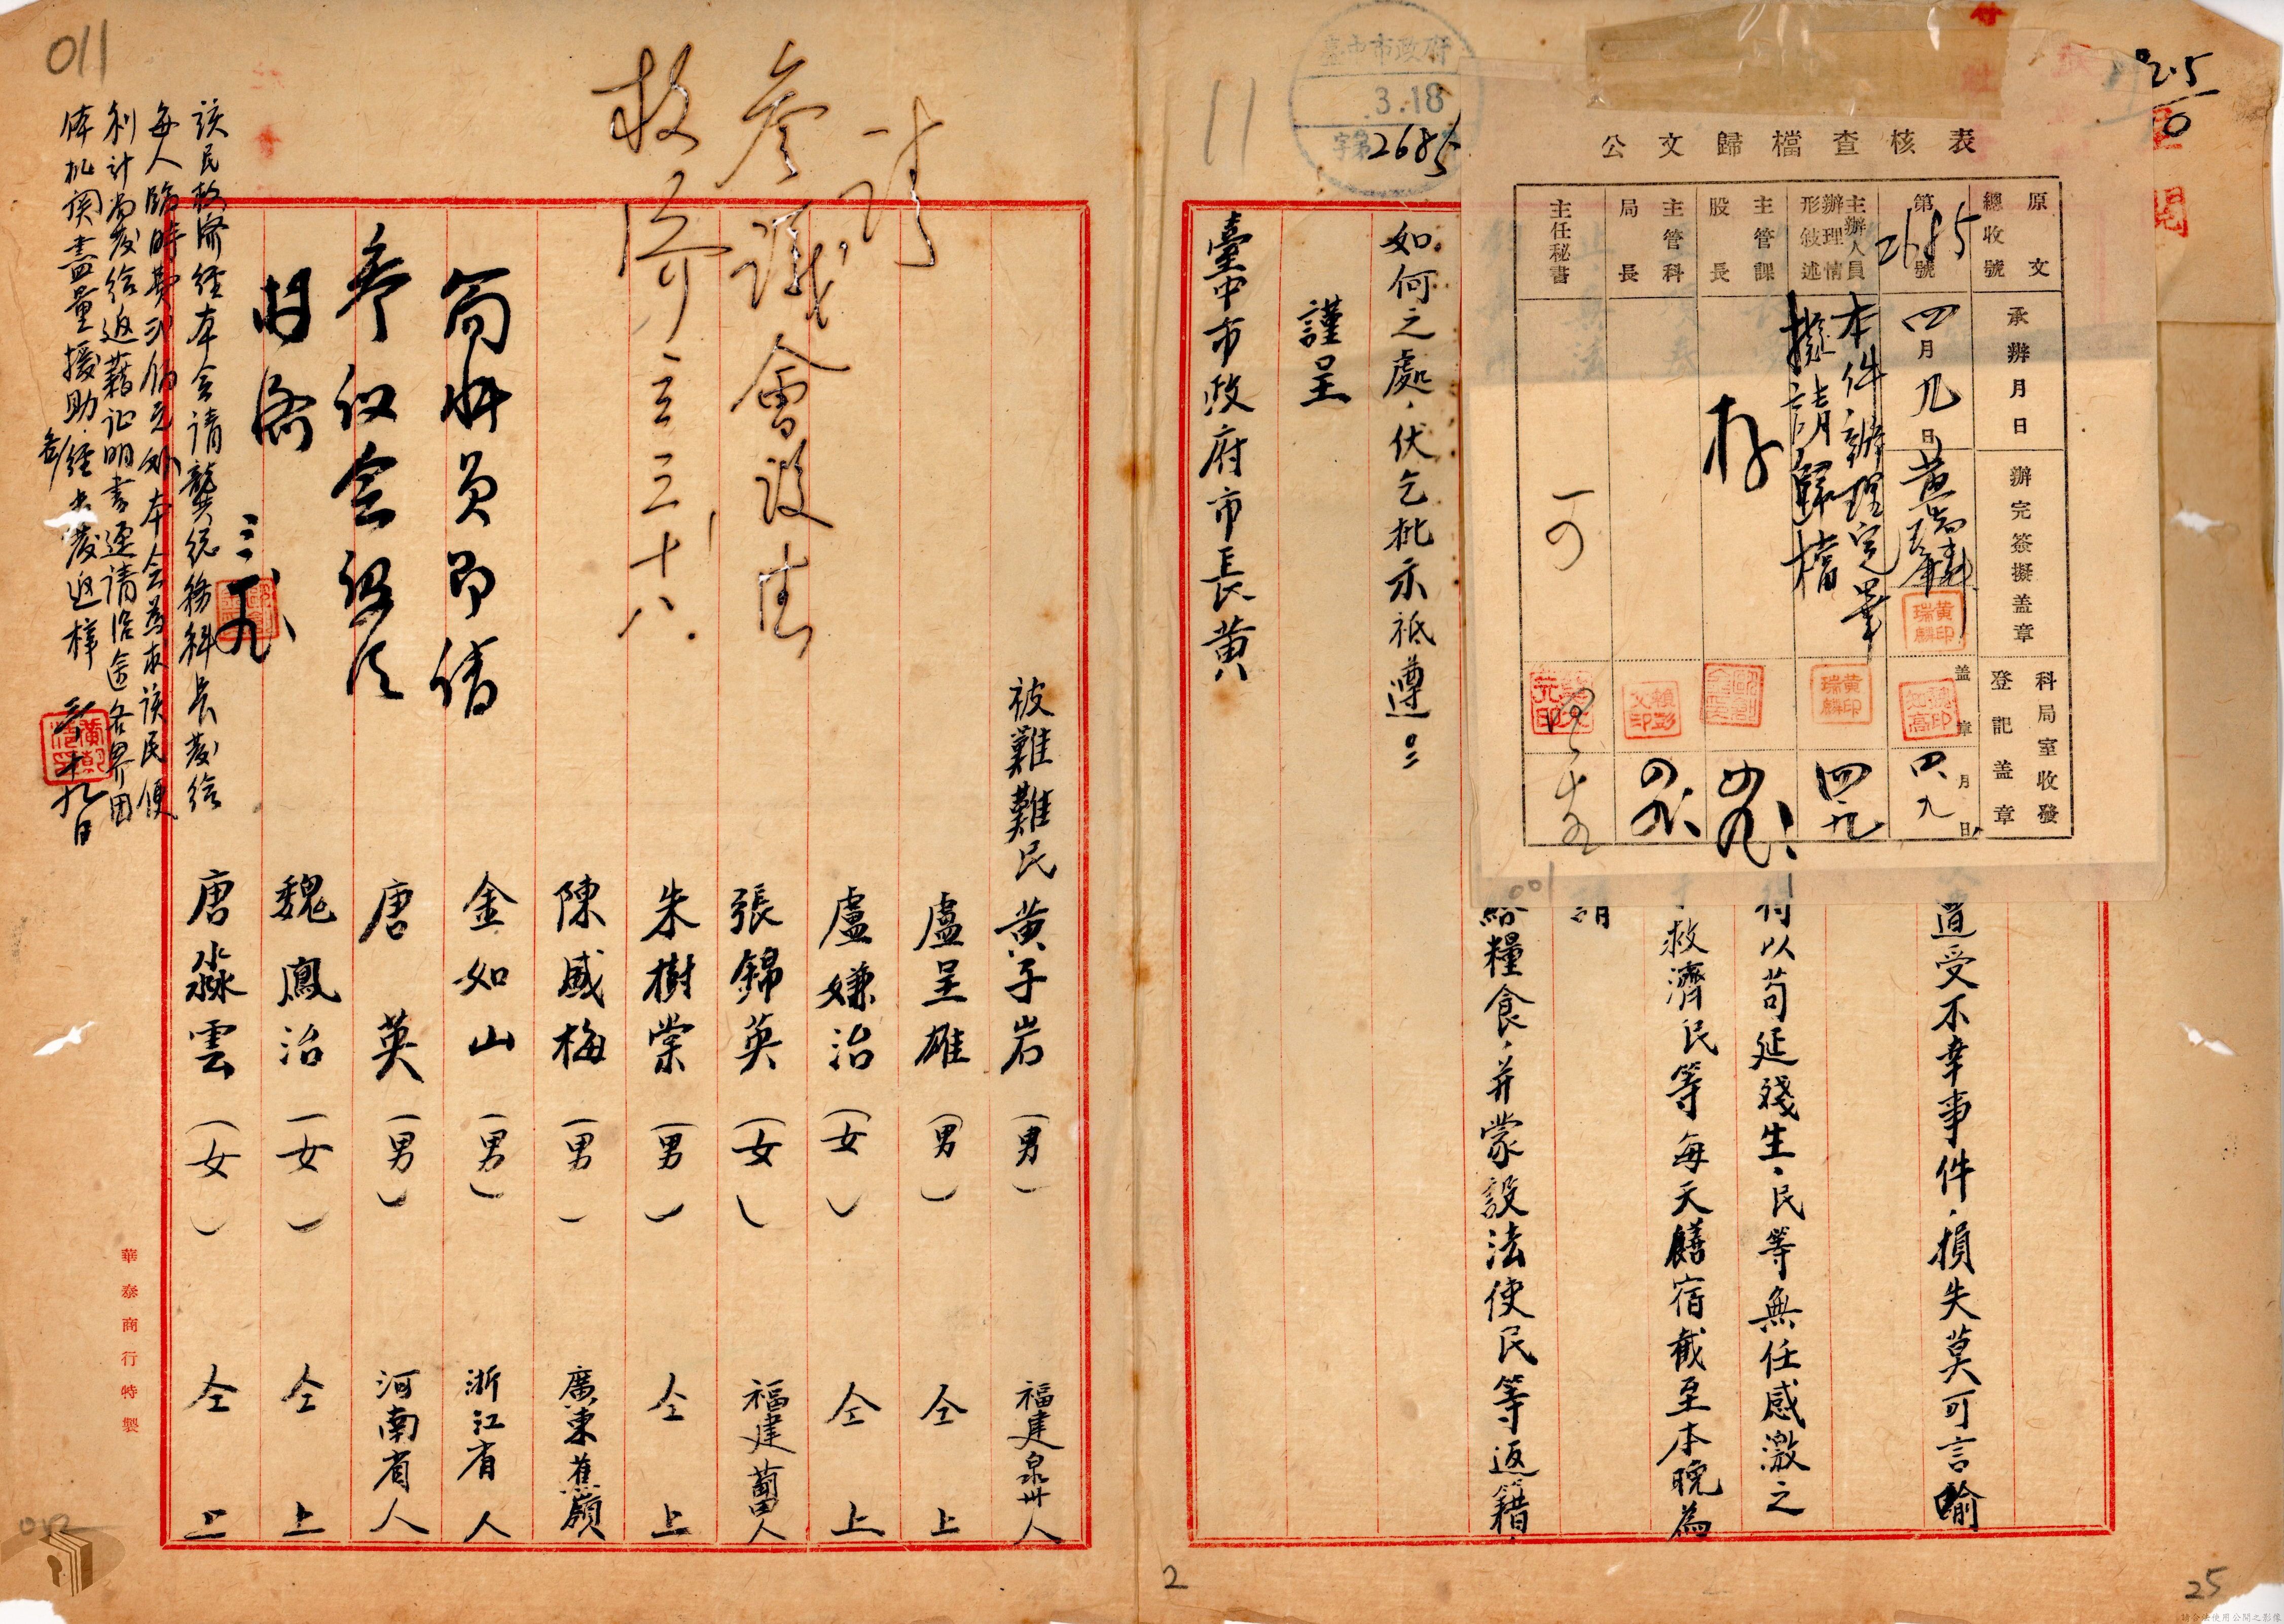 25
0
臺中市政府
3.18
字第2685
11
公文歸檔查核表
原文總收號
承辦月日
辦完簽擬蓋章
科局室收發登記蓋章
第2685號
四月九日
黃瑞麟
黃印瑞麟
蓋章
四月九日
主辦人員辦理情形敍述
本件辦理完畢
擬請歸檔
黃印瑞麟
四九
主管課股長
存
主管科局長
主任秘書
可
001
道受不幸事件,損失莫可言喻
得以苟延殘生,民等無任感激之
救濟民等每天膳宿截至本晚為
請
給糧食,并蒙設法使民等返籍,
如何之處,伏乞批示祗遵!!
謹呈
臺中市政府市長黃
被難難民 黃子岩 (男) 福建泉州人
盧呈雄 (男) 仝上
盧嫌治 (女) 仝上
張錦英 (女) 福建莆田人
朱樹棠 (男) 仝上
陳威梅 (男) 廣東蕉嶺
金如山 (男) 浙江省人
唐英 (男) 河南省人
魏鳳治 (女) 仝上
唐淼雲 (女) 仝上
請
參議會設法
救濟 三十八
參議會設法
救濟
該民救濟經本会请龔總務科長發給
每人臨時費弍佰元外本会為求該民便
利計尚發給返籍证明書逕请沿途各界团
体机関盡量援助
十九日
華泰商行特製
011
2
25
請合法使用公開之影像